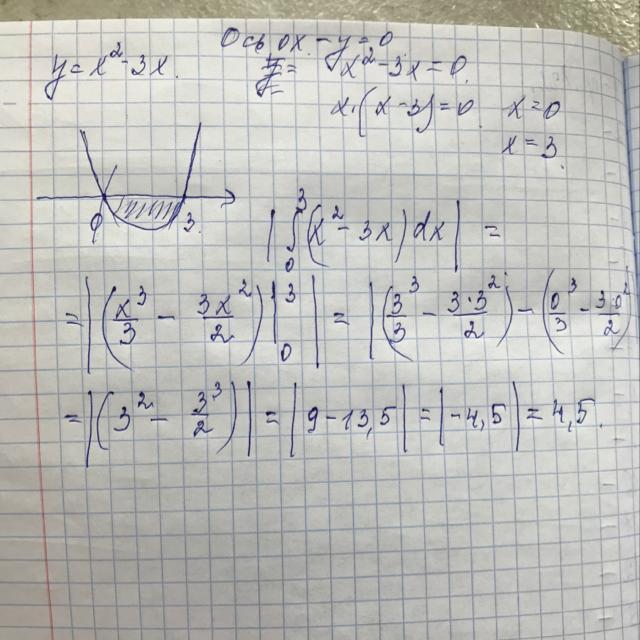 Ось ox - y=0
y=x²-3x.
y= x²-3x=0.
x·(x-3)=0 x=0
x=3.
0 3.
|∫₀³(x²-3x)dx| =
=|(x³/3 - 3x²/2)|₀³| = |(3³/3 - 3·3²/2)-(0³/3 - 3·0²/2)
=|(3² - 3³/2)| = |9-13,5| = |-4,5| = 4,5.